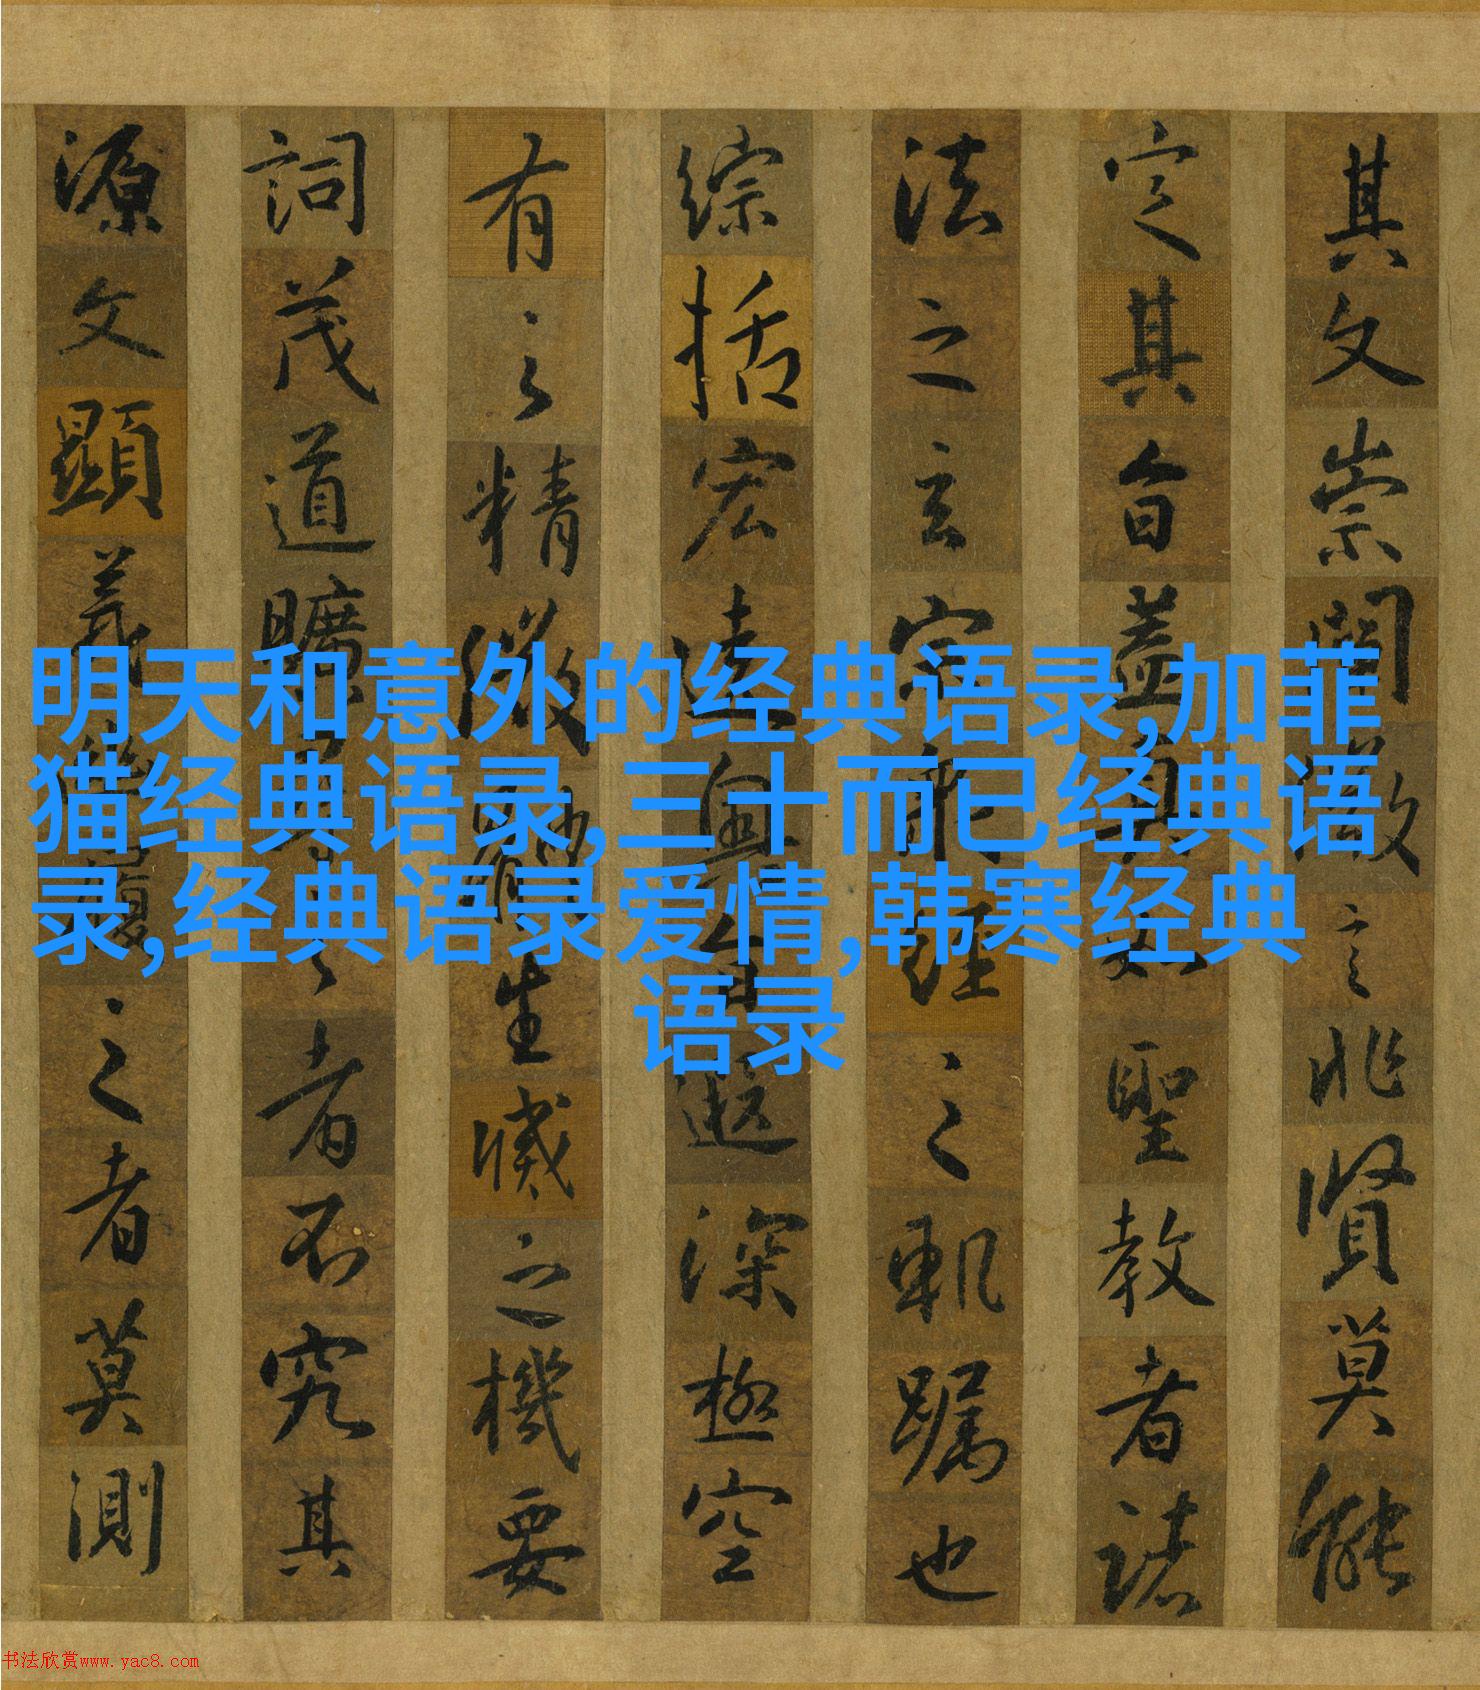 其文崇闡微言非賢莫能
定其旨盖真如聖教者諸
法之玄宗衆經之軌躅也
綜括宏遠奥旨遐深極空
有之精微體生滅之機要
詞茂道曠尋之者不究其
源文顯義幽履之者莫測
明天和意外的经典语录,加菲
猫经典语录,三十而已经典语
录,经典语录爱情,韩寒经典
语录
书法欣赏www.yac8.com